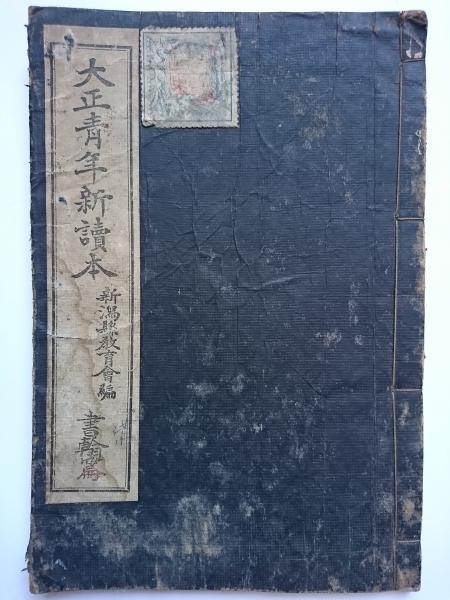 大正青年新讀本
新潟縣教育會編
書翰篇